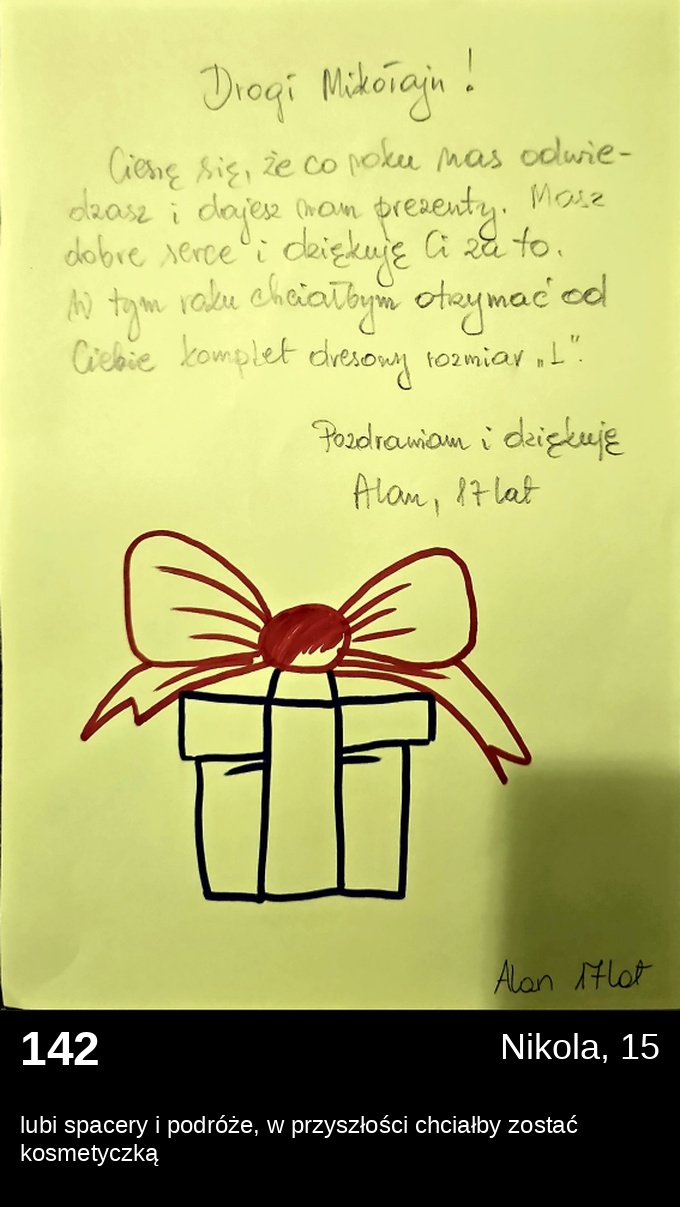 Drogi Mikołaju!
Cieszę się, że co roku nas odwie-
dzasz i dajesz nam prezenty. Masz
dobre serce i dziękuję Ci za to.
W tym roku chciałbym otrzymać od
Ciebie komplet dresowy rozmiar „L".
Pozdrawiam i dziękuję
Alan, 17 lat
Alan 17 lat
142
Nikola, 15
lubi spacery i podróże, w przyszłości chciałby zostać
kosmetyczką